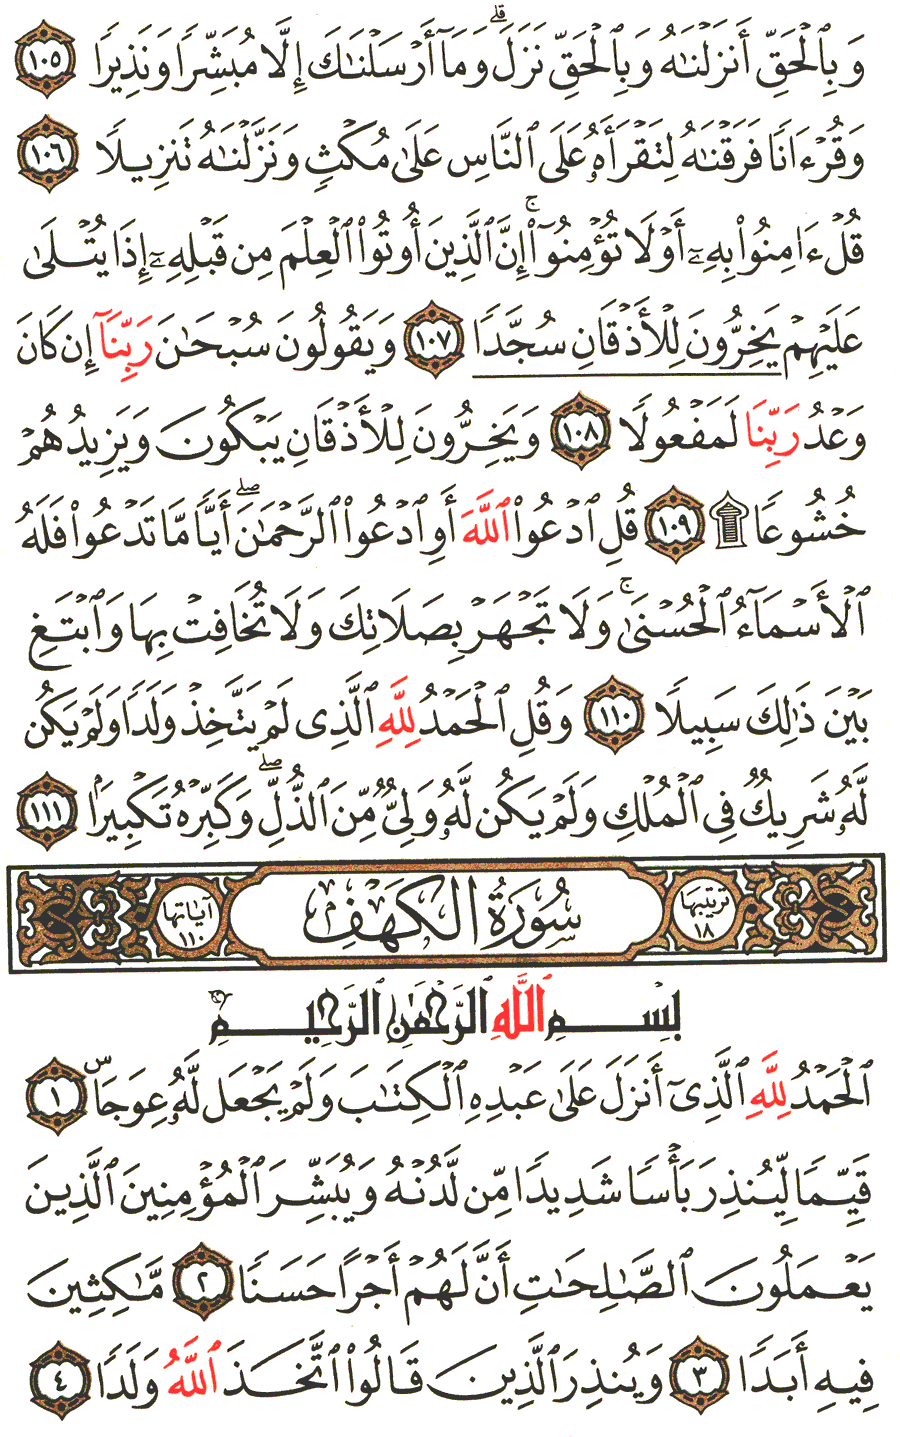 وَبِٱلْحَقِّ أَنزَلْنَٰهُ وَبِٱلْحَقِّ نَزَلَ ۗ وَمَآ أَرْسَلْنَٰكَ إِلَّا مُبَشِّرًا وَنَذِيرًا ١٠٥
وَقُرْءَانًا فَرَقْنَٰهُ لِتَقْرَأَهُۥ عَلَى ٱلنَّاسِ عَلَىٰ مُكْثٍ وَنَزَّلْنَٰهُ تَنزِيلًا ١٠٦
قُلْ ءَامِنُوا۟ بِهِۦٓ أَوْ لَا تُؤْمِنُوٓا۟ ۚ إِنَّ ٱلَّذِينَ أُوتُوا۟ ٱلْعِلْمَ مِن قَبْلِهِۦٓ إِذَا يُتْلَىٰ
عَلَيْهِمْ يَخِرُّونَ لِلْأَذْقَانِ سُجَّدًا ١٠٧ وَيَقُولُونَ سُبْحَٰنَ رَبِّنَآ إِن كَانَ
وَعْدُ رَبِّنَا لَمَفْعُولًا ١٠٨ وَيَخِرُّونَ لِلْأَذْقَانِ يَبْكُونَ وَيَزِيدُهُمْ
خُشُوعًا ۩ ١٠٩ قُلِ ٱدْعُوا۟ ٱللَّهَ أَوِ ٱدْعُوا۟ ٱلرَّحْمَٰنَ ۖ أَيًّا مَّا تَدْعُوا۟ فَلَهُ
ٱلْأَسْمَآءُ ٱلْحُسْنَىٰ ۚ وَلَا تَجْهَرْ بِصَلَاتِكَ وَلَا تُخَافِتْ بِهَا وَٱبْتَغِ
بَيْنَ ذَٰلِكَ سَبِيلًا ١١٠ وَقُلِ ٱلْحَمْدُ لِلَّهِ ٱلَّذِى لَمْ يَتَّخِذْ وَلَدًا وَلَمْ يَكُن
لَّهُۥ شَرِيكٌ فِى ٱلْمُلْكِ وَلَمْ يَكُن لَّهُۥ وَلِىٌّ مِّنَ ٱلذُّلِّ ۖ وَكَبِّرْهُ تَكْبِيرًۢا ١١١
ترتيبها ١٨ سُورَةُ الكَهْفِ آياتها ١١٠
بِسْمِ ٱللَّهِ ٱلرَّحْمَٰنِ ٱلرَّحِيمِ
ٱلْحَمْدُ لِلَّهِ ٱلَّذِىٓ أَنزَلَ عَلَىٰ عَبْدِهِ ٱلْكِتَٰبَ وَلَمْ يَجْعَل لَّهُۥ عِوَجَاۜ ١
قَيِّمًا لِّيُنذِرَ بَأْسًا شَدِيدًا مِّن لَّدُنْهُ وَيُبَشِّرَ ٱلْمُؤْمِنِينَ ٱلَّذِينَ
يَعْمَلُونَ ٱلصَّٰلِحَٰتِ أَنَّ لَهُمْ أَجْرًا حَسَنًا ٢ مَّٰكِثِينَ
فِيهِ أَبَدًا ٣ وَيُنذِرَ ٱلَّذِينَ قَالُوا۟ ٱتَّخَذَ ٱللَّهُ وَلَدًا ٤